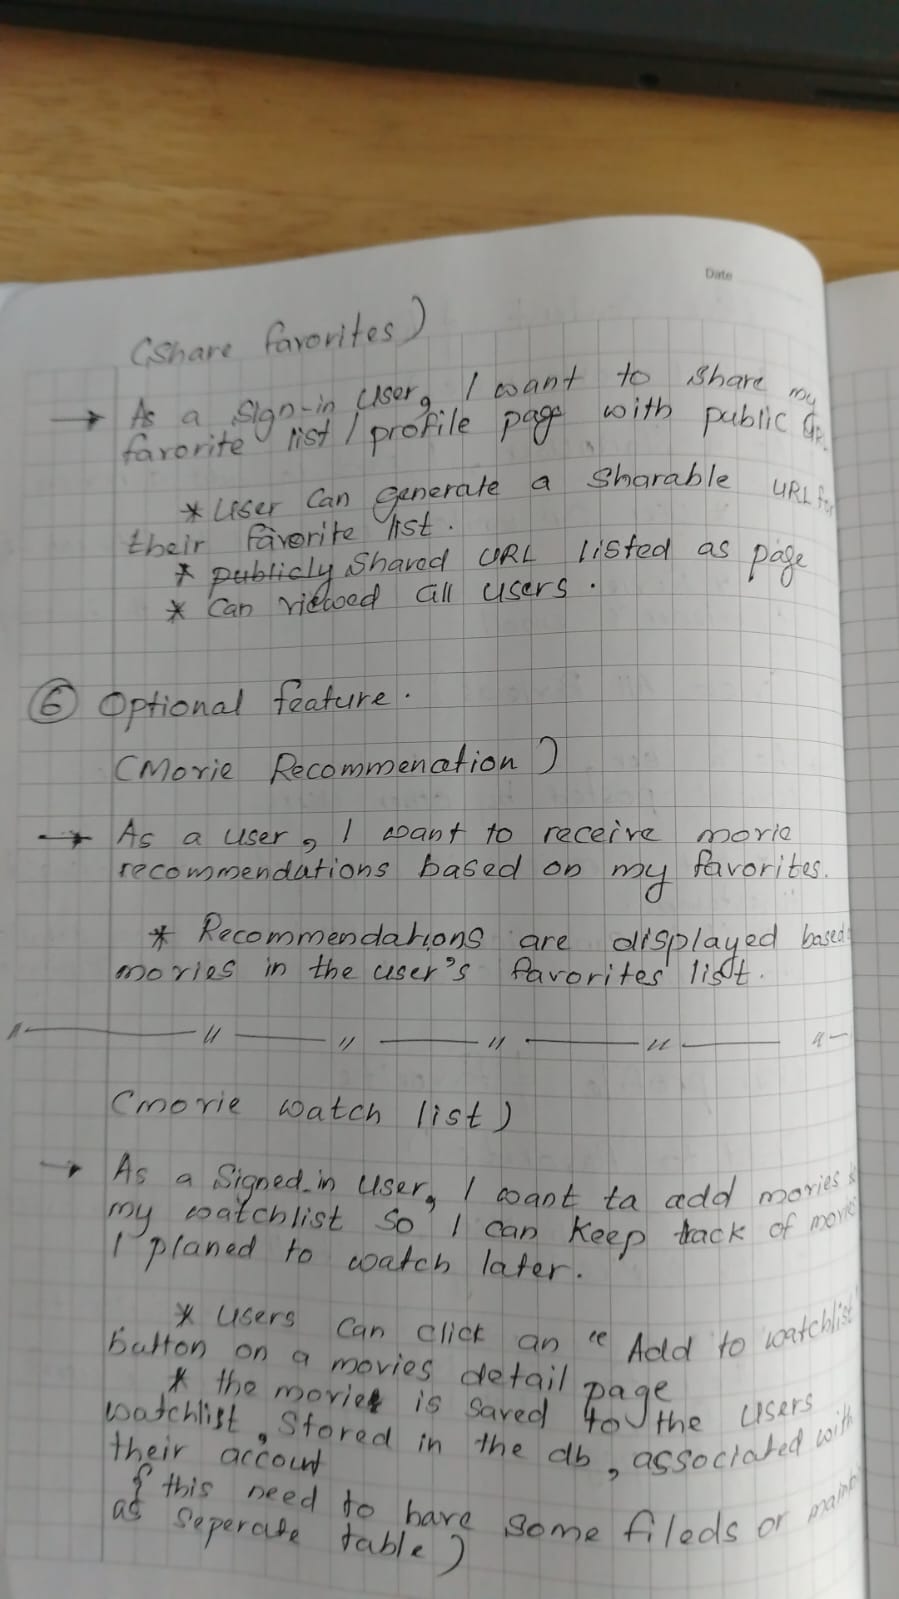 Date
(Share favorites)
→ As a Sign-in User, I want to share my
favorite list / profile page with public
* User can generate a Sharable URL for
their favorite list.
* publicly Shared URL listed as page
* Can viewed all users.
⑥ Optional feature.
(Movie Recommenation)
→ As a user, I want to receive movie
recommendations based on my favorites.
* Recommendations are displayed based
movies in the user's favorites list.
(movie watch list)
→ As a Signed-in User, I want ta add movies
my watchlist so I can keep track of movies
I planed to watch later.
* Users can click an "Add to watchlist"
button on a movies detail page
* the movie is saved to the users
watchlist, Stored in the db, associated with
their account
( this need to have some fileds or
as seperate table)